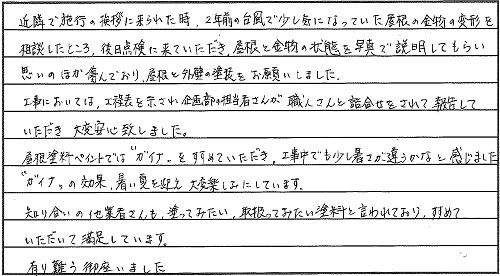 近隣で施行の挨拶に来られた時、2年前の台風で少し気になっていた屋根の金物の変形を
相談したところ、後日点検に来ていただき、屋根と金物の状態を写真で説明してもらい
思いのほか傷んでおり、屋根と外壁の塗装をお願いしました。
工事においては、工程表を示され企画部の担当者さんが職人さんと話合せをされて報告して
いただき大変安心致しました。
屋根塗料ペイントでは"ガイナ"をすすめていただき、工事中でも少し暑さが違うかなと感じました
"ガイナ"の効果、暑い夏を迎え大変楽しみにしています。
知り合いの他業者さんも、塗ってみたい、取扱ってみたい塗料と言われており、すすめて
いただいて満足しています。
有り難う御座いました